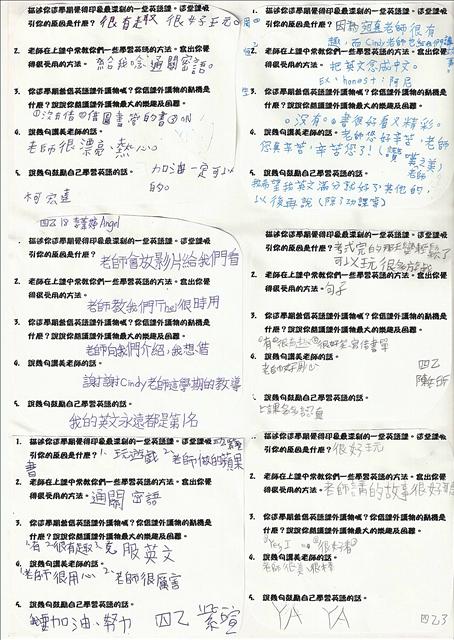 描述你這學期覺得印象最深刻的一堂英語課。這堂課吸
引你的原因是什麼？很有趣 很好玩。
2. 老師在上課中常教你們一些學習英語的方法。寫出你覺
得很受用的方法。給我唸通關密語。
3. 你這學期曾借英語課外讀物嗎？你借課外讀物的動機是
什麼？說說你閱讀英語課外讀物最大的樂趣及困難。
4. 說幾句讚美老師的話。
老師很漂亮、熱心。
5. 說幾句鼓勵自己學習英語的話。加油一定可以
的。
柯宏達
描述你這學期覺得印象最深刻的一堂英語課。這堂課吸
引你的原因是什麼？因為宛真老師很有
趣，而Cindy老師
2. 老師在上課中常教你們一些學習英語的方法。寫出你覺
得很受用的方法。把英文念成中文。
Ex：honest：阿尼
3. 你這學期曾借英語課外讀物嗎？你借課外讀物的動機是
什麼？說說你閱讀英語課外讀物最大的樂趣及困難。
沒有。書很好看又精彩。
4. 說幾句讚美老師的話。老師您好辛苦，老師
您真辛苦，辛苦您了！
5. 說幾句鼓勵自己學習英語的話。
我希望我英文滿分就好了其他的，
以後再說
四乙18 Angel
描述你這學期覺得印象最深刻的一堂英語課。這堂課吸
引你的原因是什麼？
老師會放影片給我們看
2. 老師在上課中常教你們一些學習英語的方法。寫出你覺
得很受用的方法。
老師教我們The很時用
3. 你這學期曾借英語課外讀物嗎？你借課外讀物的動機是
什麼？說說你閱讀英語課外讀物最大的樂趣及困難。
老師向我們介紹，我想借
4. 說幾句讚美老師的話。
謝謝Cindy老師這學期的教導
5. 說幾句鼓勵自己學習英語的話。
我的英文永遠都是第1名
描述你這學期覺得印象最深刻的一堂英語課。這堂課吸
引你的原因是什麼？考試完的
可以玩很多遊戲
2. 老師在上課中常教你們一些學習英語的方法。寫出你覺
得很受用的方法。句子
3. 你這學期曾借英語課外讀物嗎？你借課外讀物的動機是
什麼？說說你閱讀英語課外讀物最大的樂趣及困難。
4. 說幾句讚美老師的話。
四乙
5. 說幾句鼓勵自己學習英語的話。
1. 描述你這學期覺得印象最深刻的一堂英語課。這堂課吸
引你的原因是什麼？1. 玩遊戲 2. 老師做的蘋果
書
2. 老師在上課中常教你們一些學習英語的方法。寫出你覺
得很受用的方法。通關密語
3. 你這學期曾借英語課外讀物嗎？你借課外讀物的動機是
什麼？說說你閱讀英語課外讀物最大的樂趣及困難。
1.有 2.很有趣 3.克服英文
4. 說幾句讚美老師的話。
1.老師很用心 2.老師很厲害
5. 說幾句鼓勵自己學習英語的話。
我要加油、努力 四乙 紫暄
1. 描述你這學期覺得印象最深刻的一堂英語課。這堂課吸
引你的原因是什麼？很好玩
2. 老師在上課中常教你們一些學習英語的方法。寫出你覺
得很受用的方法。老師講的故事很好
3. 你這學期曾借英語課外讀物嗎？你借課外讀物的動機是
什麼？說說你閱讀英語課外讀物最大的樂趣及困難。
4. 說幾句讚美老師的話。
5. 說幾句鼓勵自己學習英語的話。
YA YA 四乙3